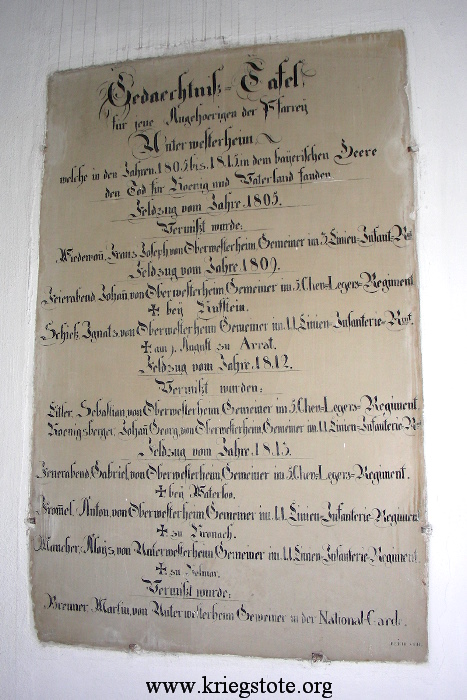 Gedaechtniß-Tafel
für jene Angehoerigen der Pfarrey
Unterwesterheim
welche in den Jahren 1805 bis 1815 in dem bayerischen Heere
den Tod für Koenig und Vaterland fanden.
Feldzug vom Jahre 1805.
Vermißt wurde:
Franz Joseph von Oberwesterheim Gemeiner im 3. Linien-Infant-Rgt
Feldzug vom Jahre 1809.
Feierabend Johañ von Oberwesterheim Gemeiner im 5. Chev-Legers-Regiment
✝ bey
Schieß, Ignatz von Oberwesterheim Gemeiner im 11. Linien-Infanterie-Regt.
✝ am August zu
Feldzug vom Jahre 1812.
Vermißt wurden:
Sebastian von Oberwesterheim Gemeiner im 5. Chev-Legers-Regiment
Koenigsberger, Johañ Georg, von Oberwesterheim, Gemeiner im 11. Linien-Infanterie-R
Feldzug vom Jahre 1815.
Feuerabend, Gabriel, von Oberwesterheim, Gemeiner im 5. Chev-Legers-Regiment.
✝ bey Waterloo.
Anton, von Oberwesterheim, Gemeiner im 11. Linien-Infanterie-Regiment
✝ zu Kronach.
Aloys, von Unterwesterheim Gemeiner im 11. Linien-Infanterie-Regiment
✝ zu Colmar.
Vermißt wurde:
Brenner, Martin, von Unterwesterheim Gemeiner in der National-Gard:
www.kriegstote.org